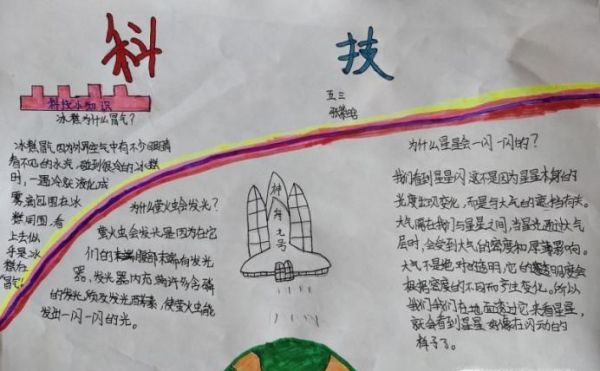 科技
五三
科技小知识
冰糕为什么冒气?
冰糕冒气因为外界空气中有不少眼睛
看不见的水汽,碰到很冷的冰糕
时,一遇冷就液化成
雾滴包围在冰
糕周围,看
上去似
乎是冰
糕在
"冒气"
为什么萤火虫会发光?
萤火虫会发光是因为在它
们的腹部末端有发光
器,发光器内充满许多含磷
的发光质及发光酵素,使萤火虫能
发出一闪一闪的光。
神舟九号
为什么星星会一闪一闪的?
我们看到星星闪这不是因为星星本身的
光度出现变化,而是与大气的密档有关。
大气隔在我们与星星之间,当星光通过大气
层时,会受到大气的密度和厚薄影响。
大气不是绝对的透明,它的透明度会
根据密度的不同而产生变化。所以
我们我们在地面透过它来看星星,
就会看到星星好像在闪动的
样子了。